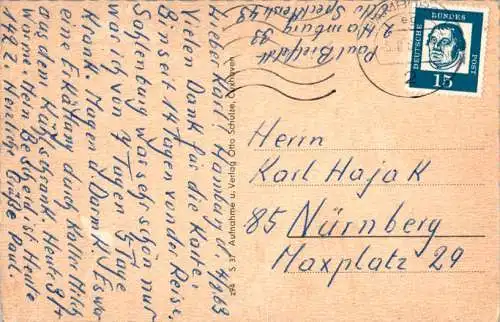 Paul Bielfeldt
2 Hamburg 33
DEUTSCHE BUNDES POST
15
2
Lieber Karl! Hamburg d. 4/9 63
Vielen Dank für die Karte.
Bin seit 14 Tagen von der Reise.
Sahlenburg war sehr schön nur
war ich von 9 Tagen 5 Tage
Krank. Magen u. Darm. Es war
eine Erkältung durch kalte Milch
aus dem Kühlschrank. Heute
Herzliche Grüße Paul.
294 S 37 Aufnahme u. Verlag Otto Schulze, Cuxhaven
Herrn
Karl Hajak
85 Nürnberg
Maxplatz 29